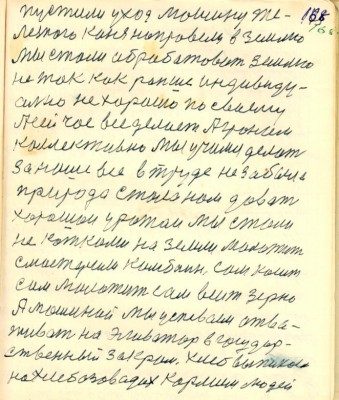 188
пустили уход машину же-
лезного коня направели в землю
Мы стали обрабатоват землю
не так как ранше индивиду-
ално не хорошо по своему
А сей час все делает Агроном
колективно мы учимс делат
за наше все в труде не забыла
природа стала нам доват
хороший урожай мы стали
не катками на земли молотит
смастерили Комбаин. сам косит
сам молотит сам веит зерно
А машиной мы успеваем отва-
живат на Эливатор в государ-
ственный Закром. Хлеб
на хлебозаводах Кормим людей